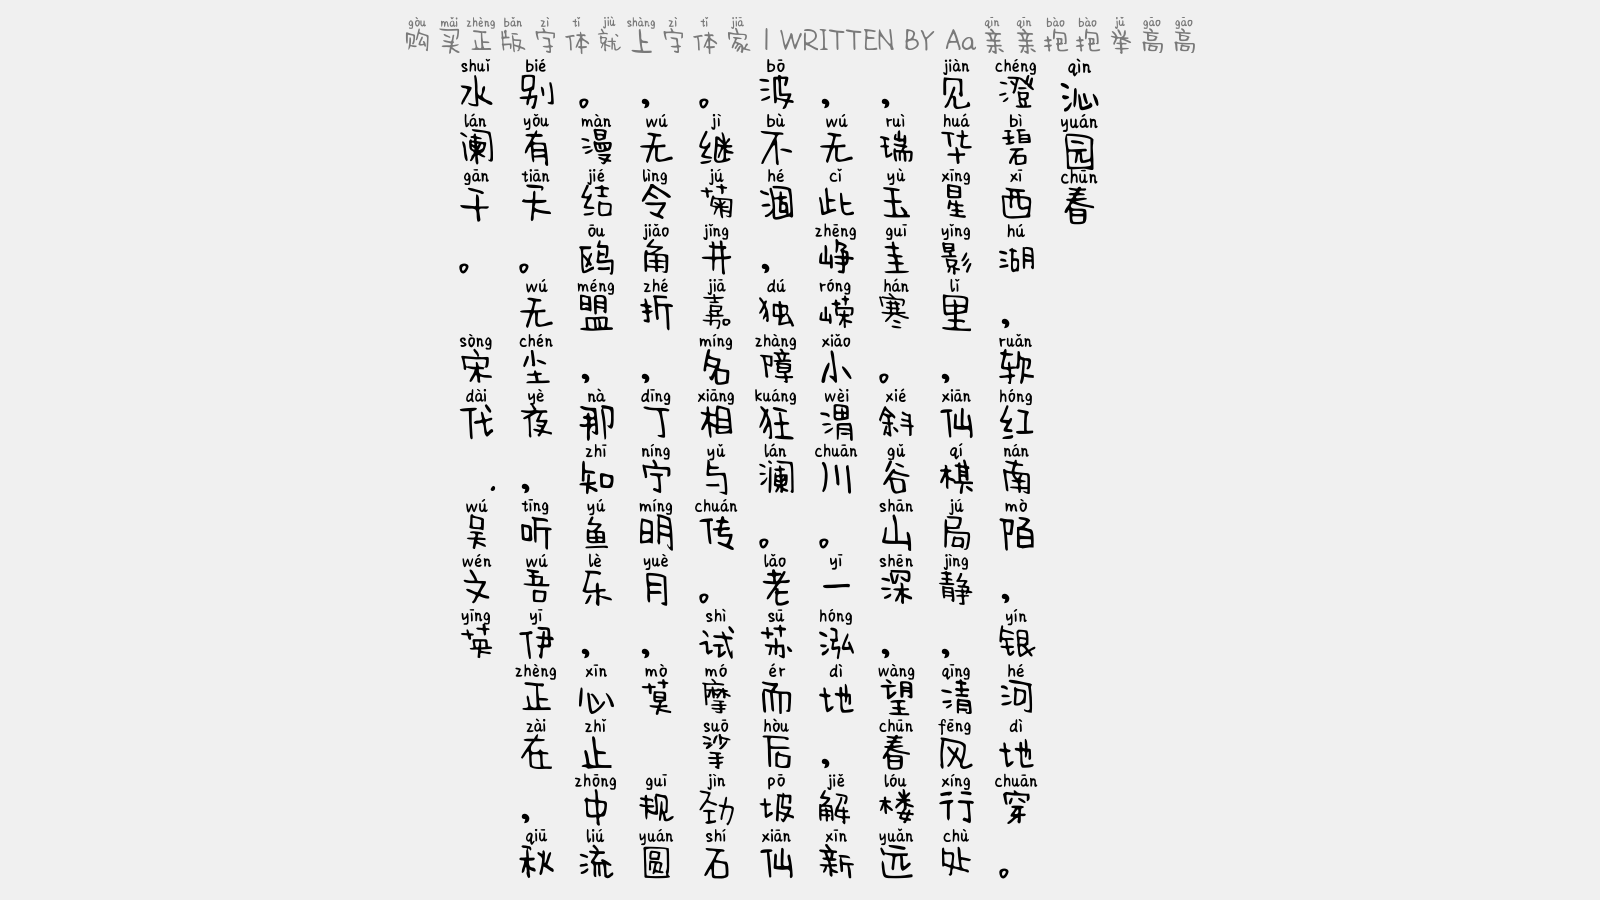 购买正版字体就上字体家 | WRITTEN BY Aa亲亲抱抱举高高
沁园春
澄碧西湖，软红南陌，银河地穿。
见华星影里，仙棋局静，清风行处
，瑞玉圭寒。斜谷山深，望春楼远
，无此峥嵘小渭川。一泓地，解新
波不涸，独障狂澜。老苏而后坡仙
。继菊井嘉名相与传。试摩挲劲石
，无令角折，丁宁明月，莫 规圆
。漫结鸥盟，那知鱼乐，心止中流
别有天。无尘夜，听吾伊正在，秋
水阑干。 宋代.吴文英